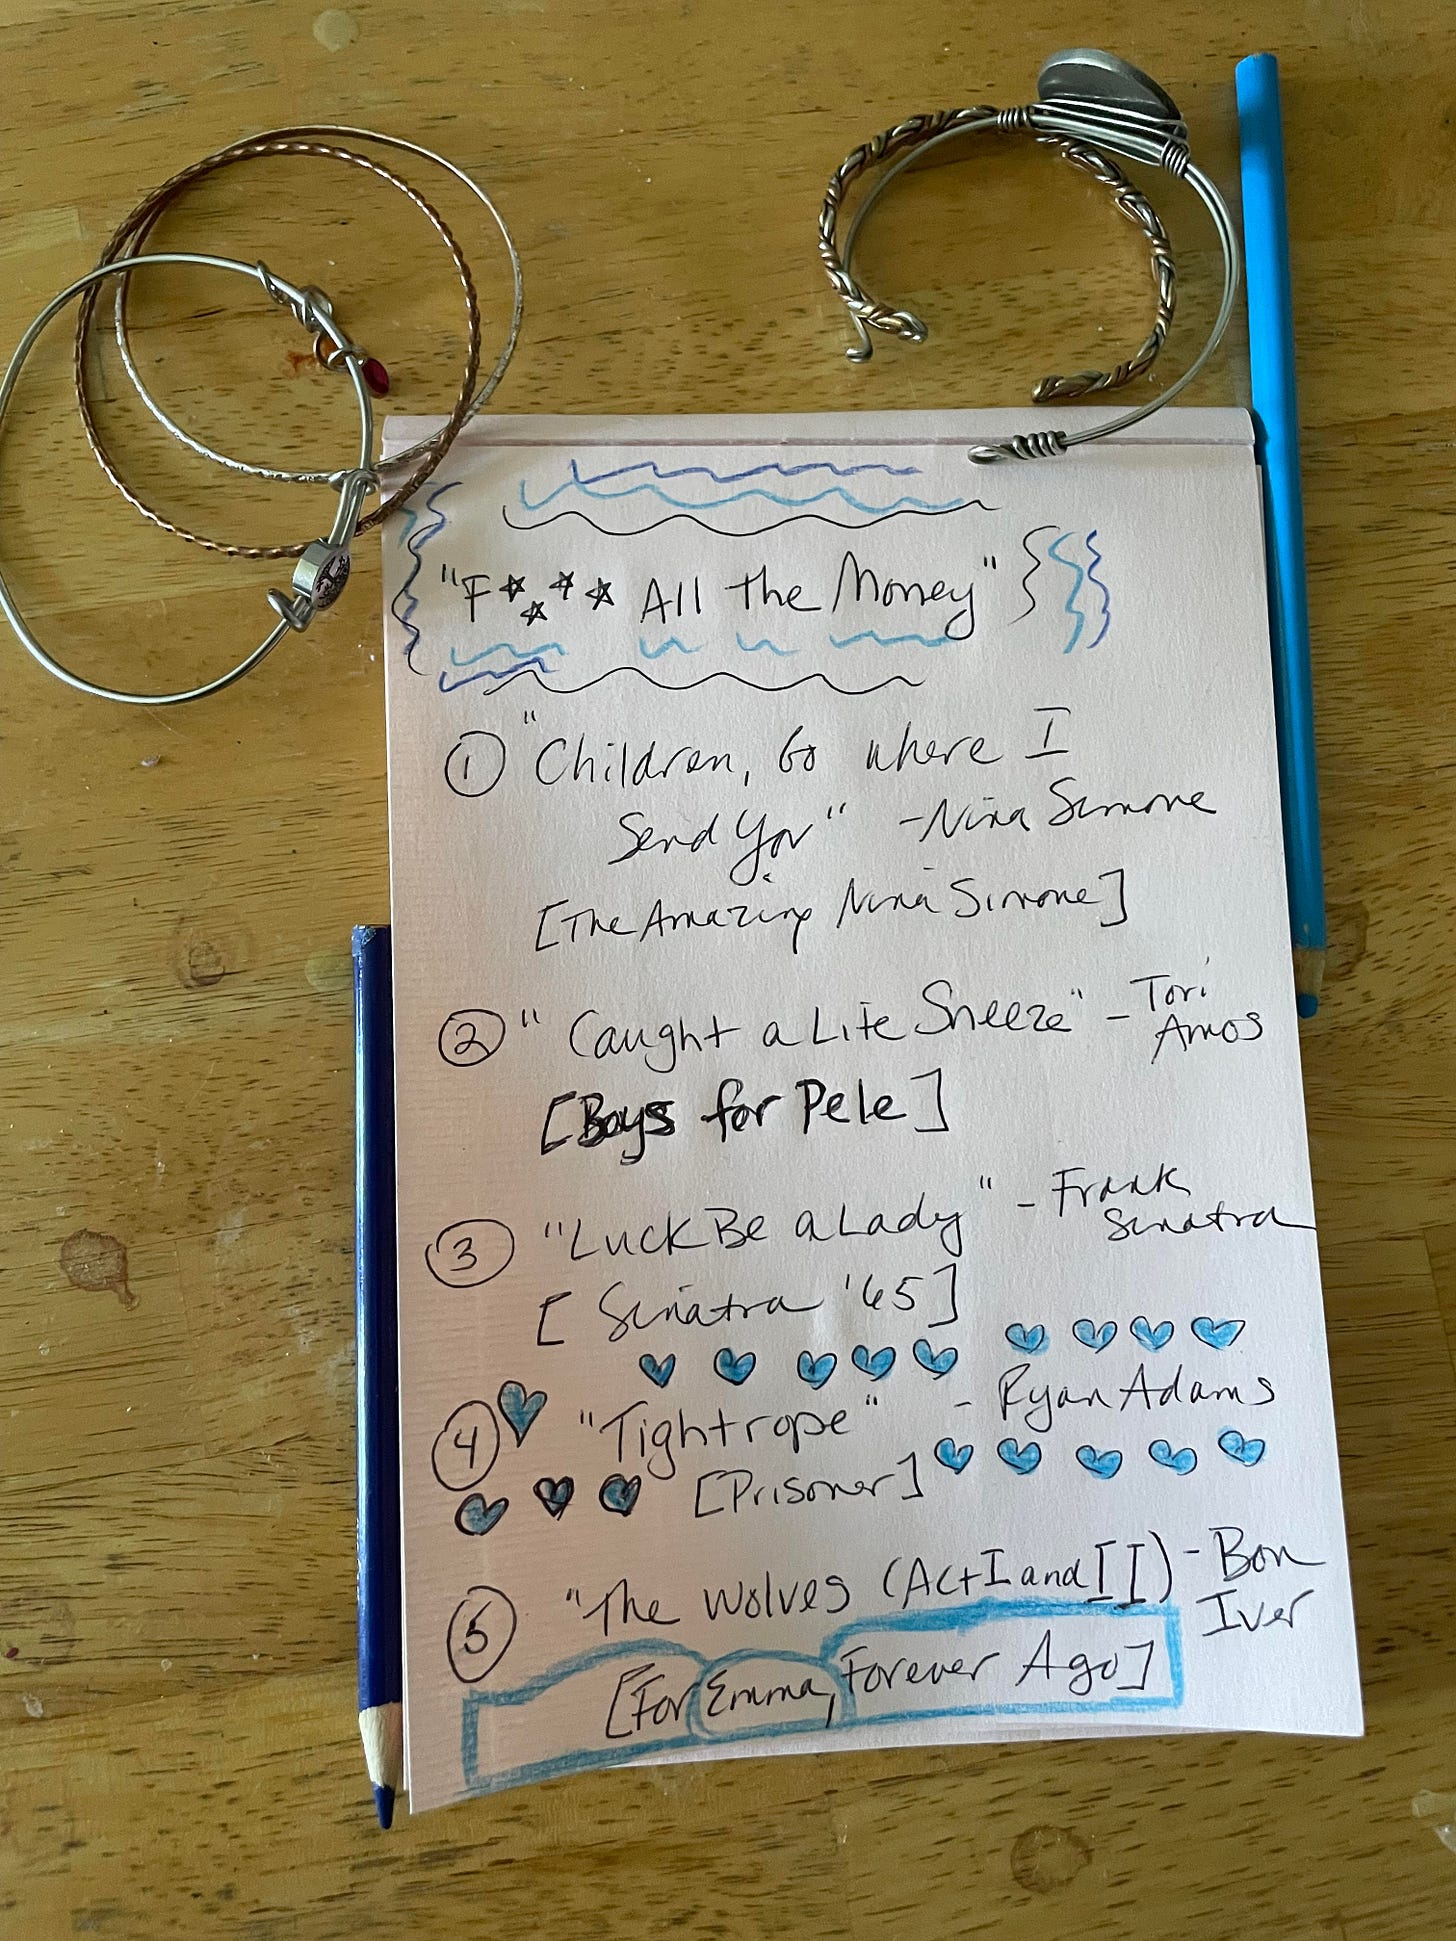 "F**** All the Money"
① "Children, Go where I
Send You" - Nina Simone
[The Amazing Nina Simone]
② "Caught a Lite Sneeze" - Tori
Amos
[Boys for Pele]
③ "Luck Be a Lady" - Frank
Sinatra
[Sinatra '65]
④ "Tightrope" - Ryan Adams
[Prisoner]
⑤ "The Wolves (Act I and II) - Bon
Iver
[For Emma, Forever Ago]